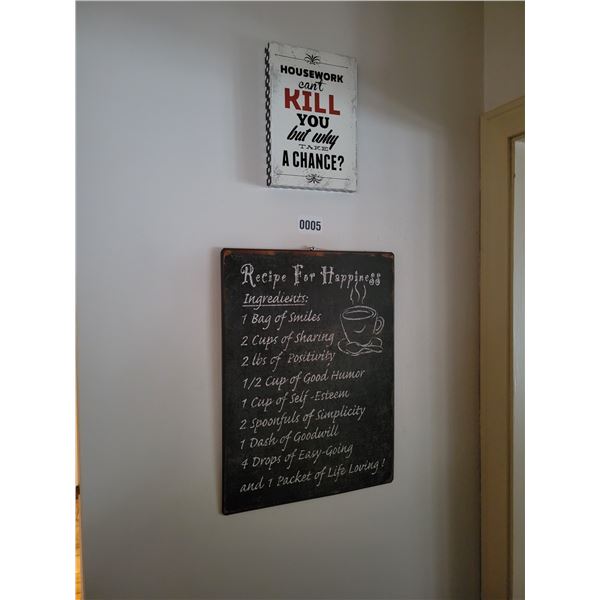 HOUSEWORK
can't
KILL
YOU
but why
TAKE
A CHANCE?
0005
Recipe For Happiness
Ingredients:
1 Bag of Smiles
2 Cups of Sharing
2 lbs of Positivity
1/2 Cup of Good Humor
1 Cup of Self-Esteem
2 Spoonfuls of Simplicity
1 Dash of Goodwill
4 Drops of Easy-Going
and 1 Packet of Life Loving!